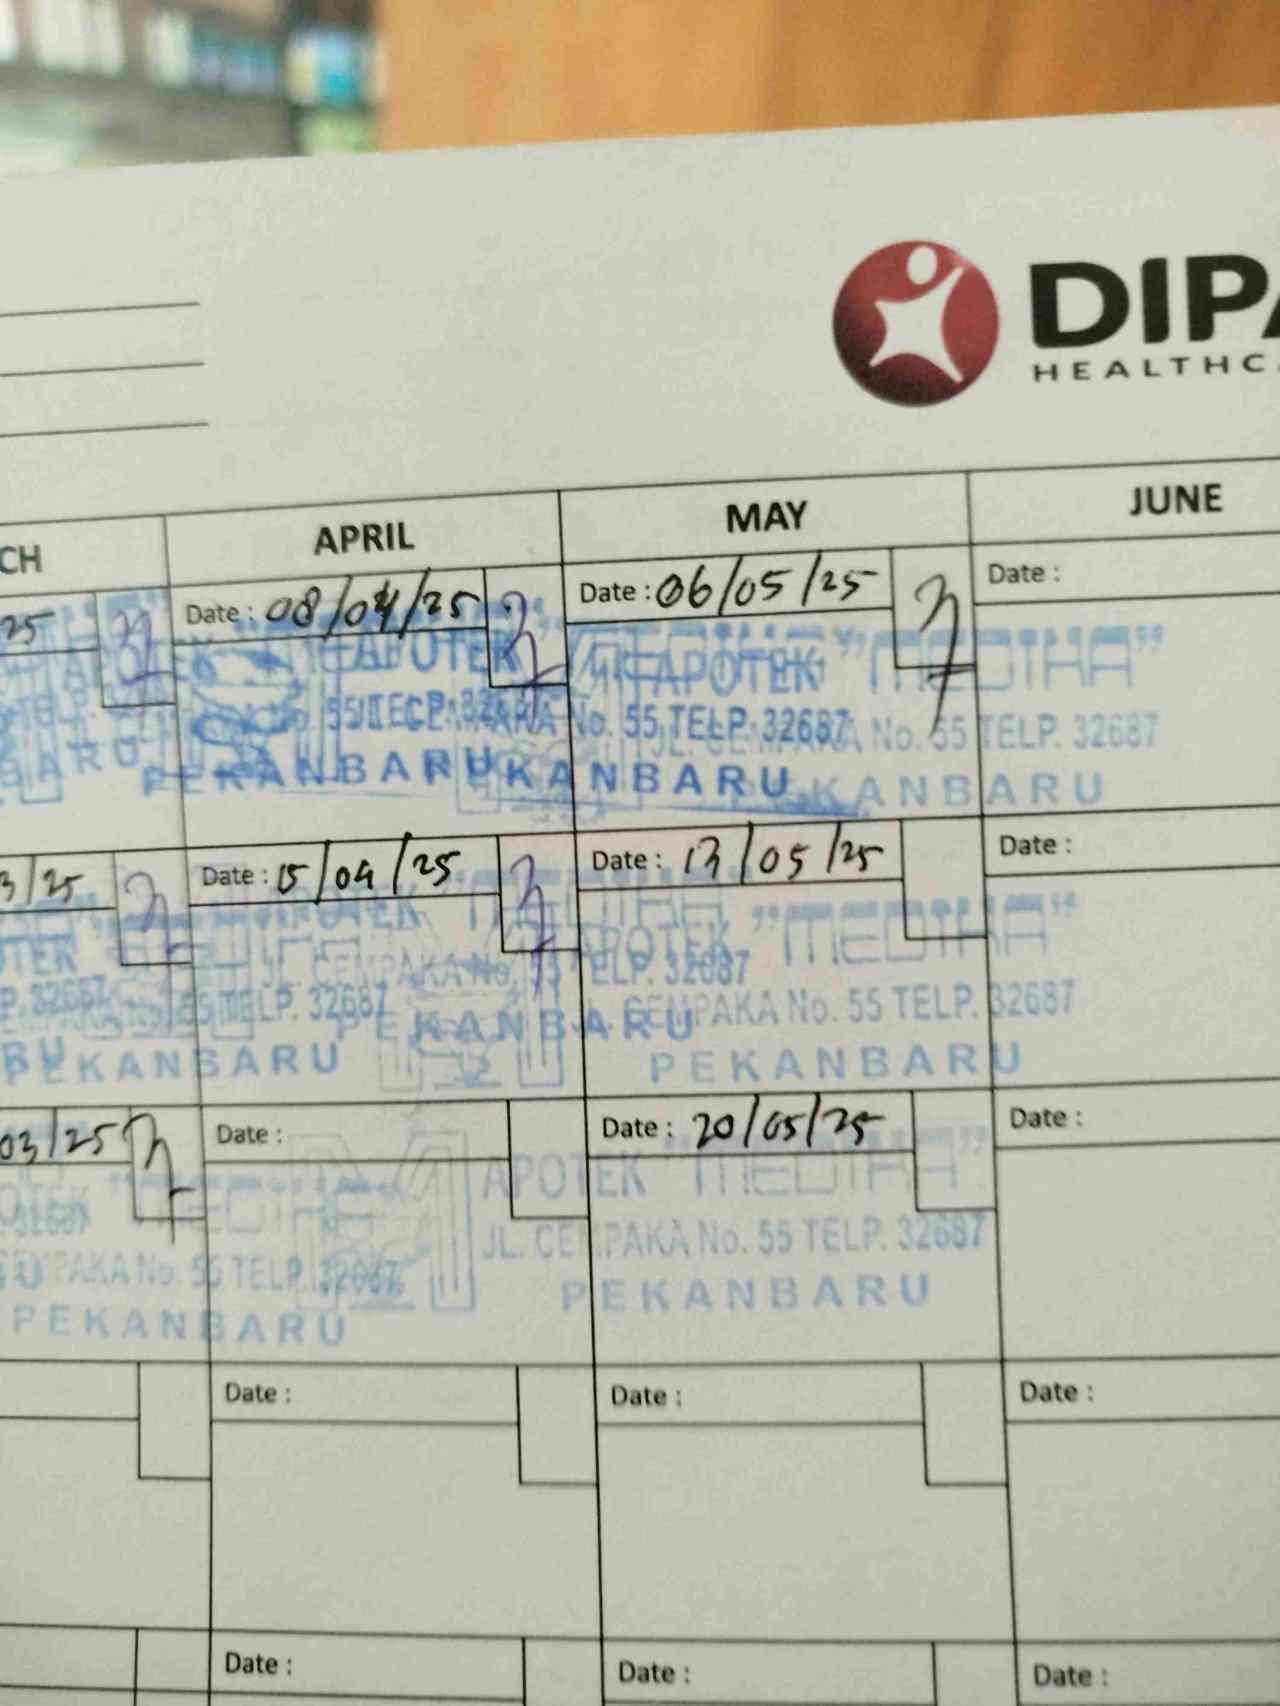 DIPA
HEALTHC
CH APRIL MAY JUNE
25 Date : 08/04/25 Date : 06/05/25 Date :
APOTEK APOTEK "MEDIKA"
No. 55 TELP. 32687 JL. CEMPAKA No. 55 TELP. 32687
PEKANBARU KANBARU PEKANBARU
3/25 Date : 15/04/25 Date : 13/05/25 Date :
APOTEK APOTEK "MEDIKA"
P. 32687 55 TELP. 32687 JL. CEMPAKA No. 55 TELP. 32687 JL. CEMPAKA No. 55 TELP. 32687
PEKANBARU PEKANBARU PEKANBARU
03/25 Date : Date : 20/05/25 Date :
APOTEK "MEDIKA"
PAKA No. 55 TELP. 32687 JL. CEMPAKA No. 55 TELP. 32687
PEKANBARU PEKANBARU
Date : Date : Date :
Date : Date : Date :